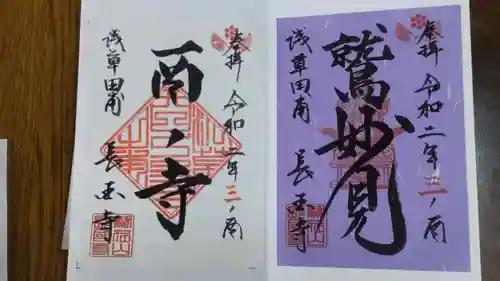 奉拝
令和二年三ノ酉
酉ノ寺
浅草田甫
長国寺
奉拝
令和二年二ノ酉
鷲妙見
浅草田甫
長国寺